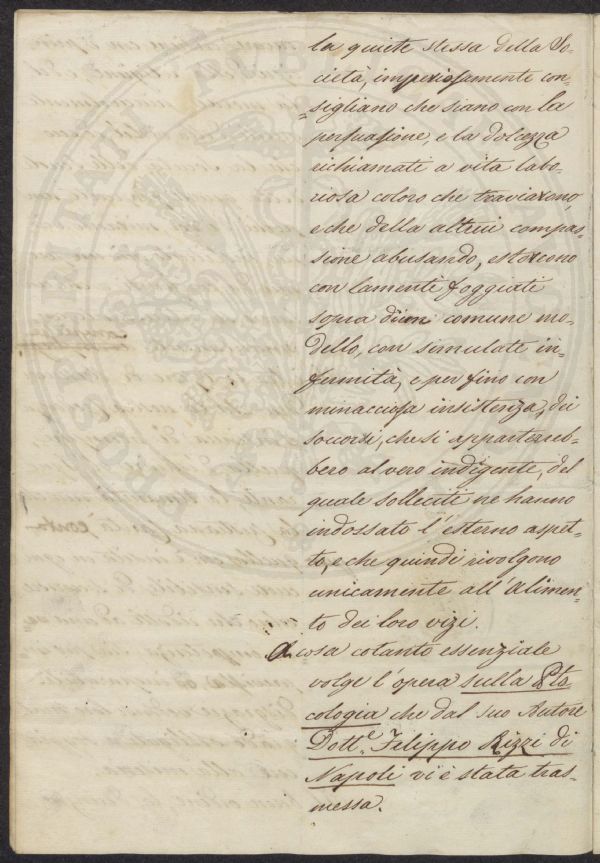 la quiete stessa della So-
cietà, imperiosamente con-
=sigliano che siano con la
persuasione, e la dolcezza
richiamati a vita labo-
riosa coloro che traviarono,
e che della altrui compas-
sione abusando, estorcono
con lamente foggiati
sopra di un comune mo-
dello, con simulate in-
fermità, e per fino con
minacciosa insistenza, dei
soccorsi, che si apparterreb-
bero al vero indigente, del
quale solleciti ne hanno
indossato l'esterno aspet-
to, e che quindi rivolgono
unicamente all'alimen-
to dei loro vizi.
A cosa cotanto essenziale
volge l'opera sulla Pto
cologia che dal suo Autore
Dott.e Filippo Rizzi di
Napoli vi è stata tras-
messa.